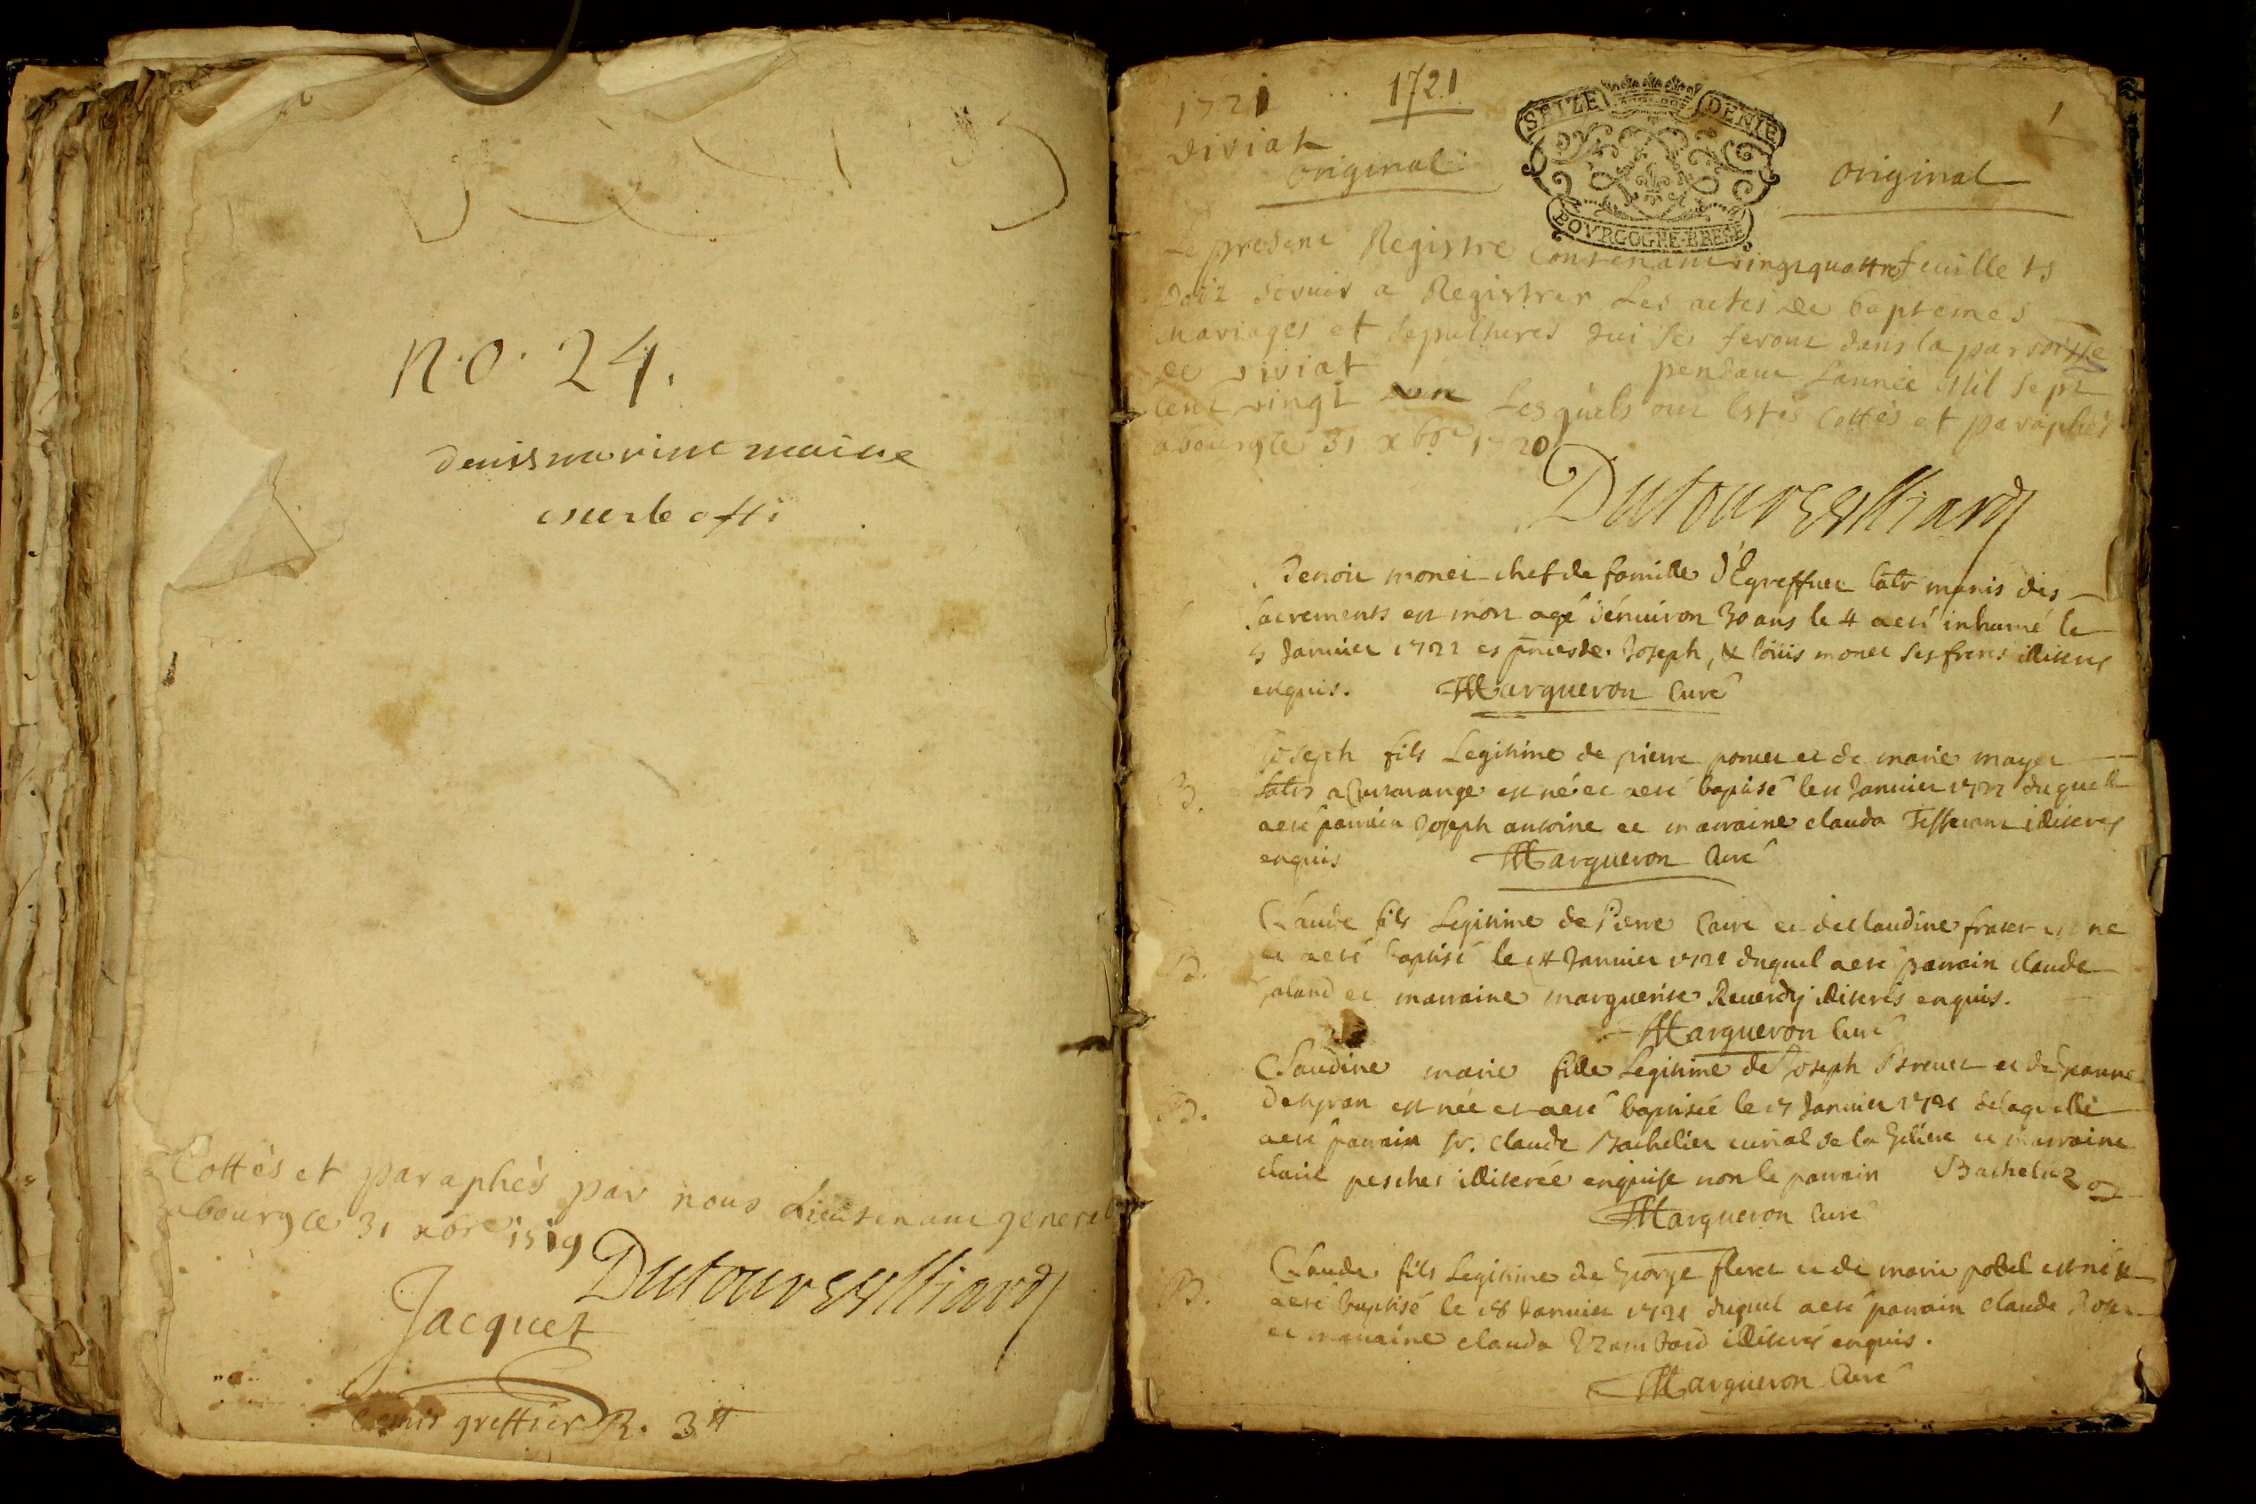 n.o. 24.
Cottés et paraphés par nous Lieutenant general
abourg ce 31 xbre 1719
Dutour Vulliard
Jacquet
Comis greffier R. 3 tt
1721
1721
1
viviat
original
original
SEIZE DENIE
BOVRGOGNE-BRESSE
Le present Registre Contenant vingt quattre feuillets
doit servir a Registrer Les actes de baptemes
mariages et sepultures qui se feront dans la parroisse
de viviat pendant Lannée Mil sept
cent vingt un Lesquels ont Estés Cottés et paraphés
abourg ce 31 xbre 1720
Dutour Vulliard
Benoit monet chef de famille d'Egreffuet munis des
sacrements est mort agé d'enuiron 30 ans le 4 a eté inhumé le
5 Januier 1721 es pñces de Joseph, & loüis monet ses freres illiterés
enquis. Margueron Curé
Joseph fils Legitime de pierre et de marie mayet
est né et a eté baptisé le 11 Januier 1721 duquel
a eté parrain Joseph antoine et marraine clauda Tisserant illiterés
enquis Margueron Curé
B.
Claude fils Legitime de Pierre Caire et de claudine est né
et a eté baptisé le 14 Januier 1721 duquel a eté parrain claude
B.
et marraine marguerite Reuerdy illiterés enquis.
Margueron Curé
Claudine marie fille Legitime de Joseph Breuet et de Jeanne
B.
est née et a eté baptisée le 17 Januier 1721 de laquelle
a eté parrain sr. claude Bachelier curial de la et marraine
pescher illiterée enquise non le parrain Bachelier
Margueron Curé
B.
Claude fils Legitime de George et de marie est né &
a eté baptisé le 18 Januier 1721 duquel a eté parrain claude
et marraine clauda illiterés enquis.
Margueron Curé